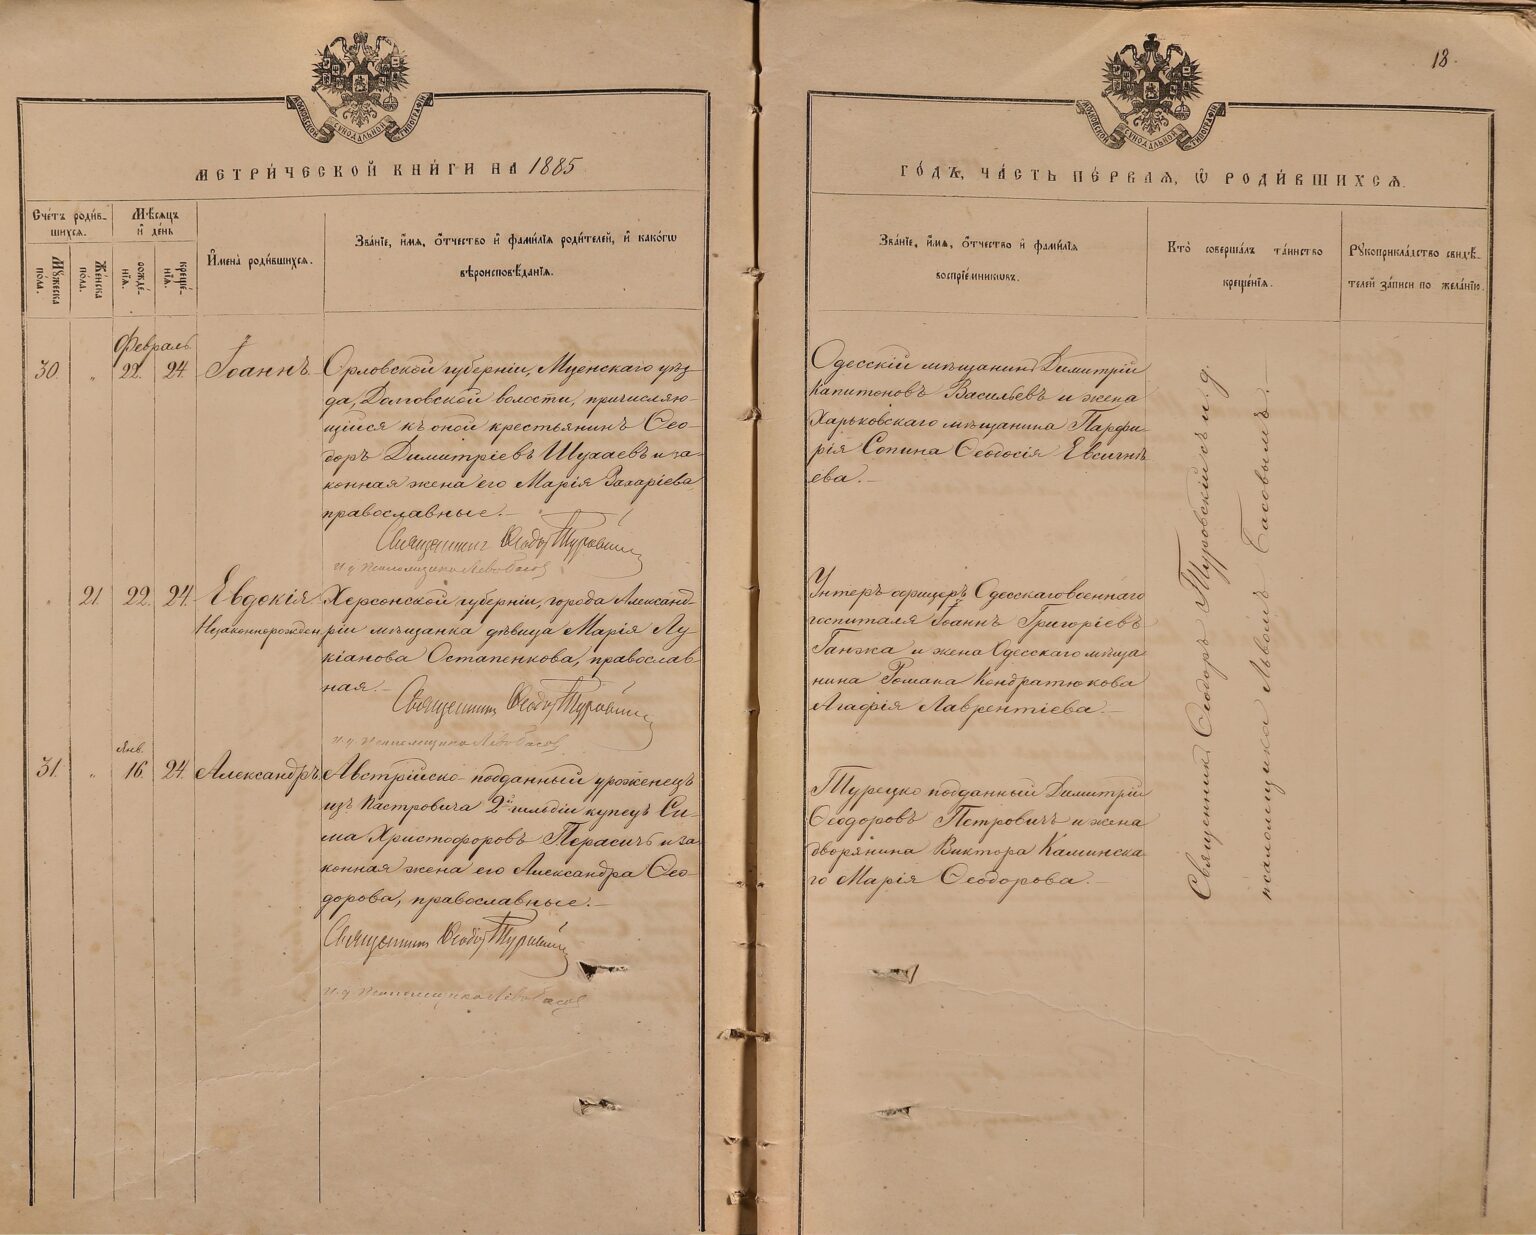 МОСКОВСКОЙ СѴНОДАЛЬНОЙ ТИПОГРАФІИ
МЕТРИ́ЧЕСКОЙ КНИ́ГИ НА 1885
Сче́тъ роди́в-
шихсѧ.
Му́жеска
по́ла.
Же́нска
по́ла.
Мѣ́сѧцъ
и҆ де́нь
рожде́-
нїѧ.
креще́-
нїѧ.
И҆мена̀ роди́вшихсѧ.
Зва́нїе, и҆́мѧ, ѻ҆́тчество и҆ фами́лїѧ роди́телей, и҆ како́гѡ
вѣроисповѣ́данїѧ.
Февраль
30. „ 22. 24. Іоаннъ
Орловской губерніи, Мценскаго уѣз-
да, Долговской волости, причисляю-
щійся къ оной крестьянинъ Ѳео-
доръ Димитріевъ Шухаевъ и за-
конная жена его Марія Захаріева,
православные. —
Священникъ Ѳеодоръ Туровскій
и. д. псаломщика Левъ Басов
„ 21. 22. 24. Евдокія
Незаконнорожден.
Херсонской губерніи, города Александ-
ріи мѣщанка дѣвица Марія Лу-
кіанова Остапенкова, православ-
ная. —
Священникъ Ѳеодоръ Туровскій
и. д. псаломщика Левъ Басов
Янв.
31. „ 16. 24. Александръ
Австрійско-подданный уроженецъ
изъ Кастровича 2й гильдіи купецъ Си-
ма Христофоровъ Перасичъ и за-
конная жена его Александра Ѳео-
дорова, православные. —
Священникъ Ѳеодоръ Туровскій
и. д. псаломщика Левъ Басов
18.
МОСКОВСКОЙ СѴНОДАЛЬНОЙ ТИПОГРАФІИ
ГО́ДЪ, ЧА́СТЬ ПЕ́РВАѦ, Ѽ РОДИ́ВШИХСѦ.
Зва́нїе, и҆́мѧ, ѻ҆́тчество и҆ фами́лїѧ
воспрїе́мникѡвъ.
Кто̀ соверша́лъ та́инство
креще́нїѧ.
Рукоприкла́дство свидѣ́-
телей за́писи по жела́нїю.
Одесскій мѣщанинъ Димитрій
Капитоновъ Васильевъ и жена
Харьковскаго мѣщанина Парфи-
рія Сопина Ѳеодосія Евсигнѣ-
ева. —
Унтеръ-офицеръ Одесскаго военнаго
госпиталя Іоаннъ Григоріевъ
Ганжа и жена Одесскаго мѣща-
нина Романа Кондратюкова
Агафія Лаврентіева. —
Турецко-подданный Димитрій
Ѳеодоровъ Петровичъ и жена
дворянина Виктора Каминска-
го Марія Ѳеодорова. —
Священникъ Ѳеодоръ Туровскій съ и. д.
псаломщика Львомъ Басовымъ. —